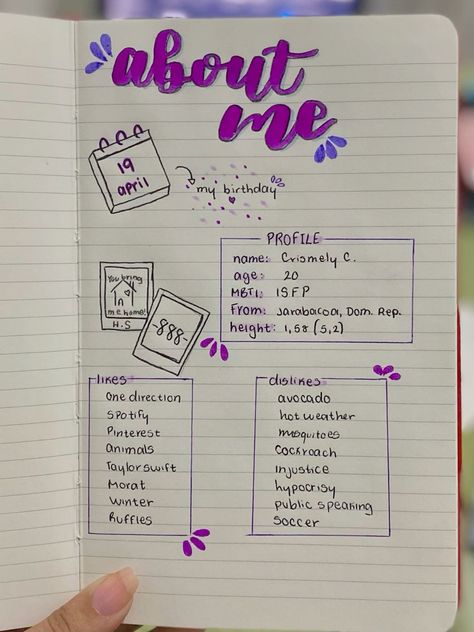 about
me
19
april
my birthday
PROFILE
name: Crismely C.
age: 20
MBTI: ISFP
From: Jarabacoa, Dom. Rep.
height: 1,58 (5,2)
You bring
me home!
H.S
-888-
likes
One direction
Spotify
Pinterest
animals
Taylor swift
Morat
Winter
Ruffles
dislikes
avocado
hot weather
mosquitoes
Cockroach
injustice
hypocrisy
public speaking
Soccer